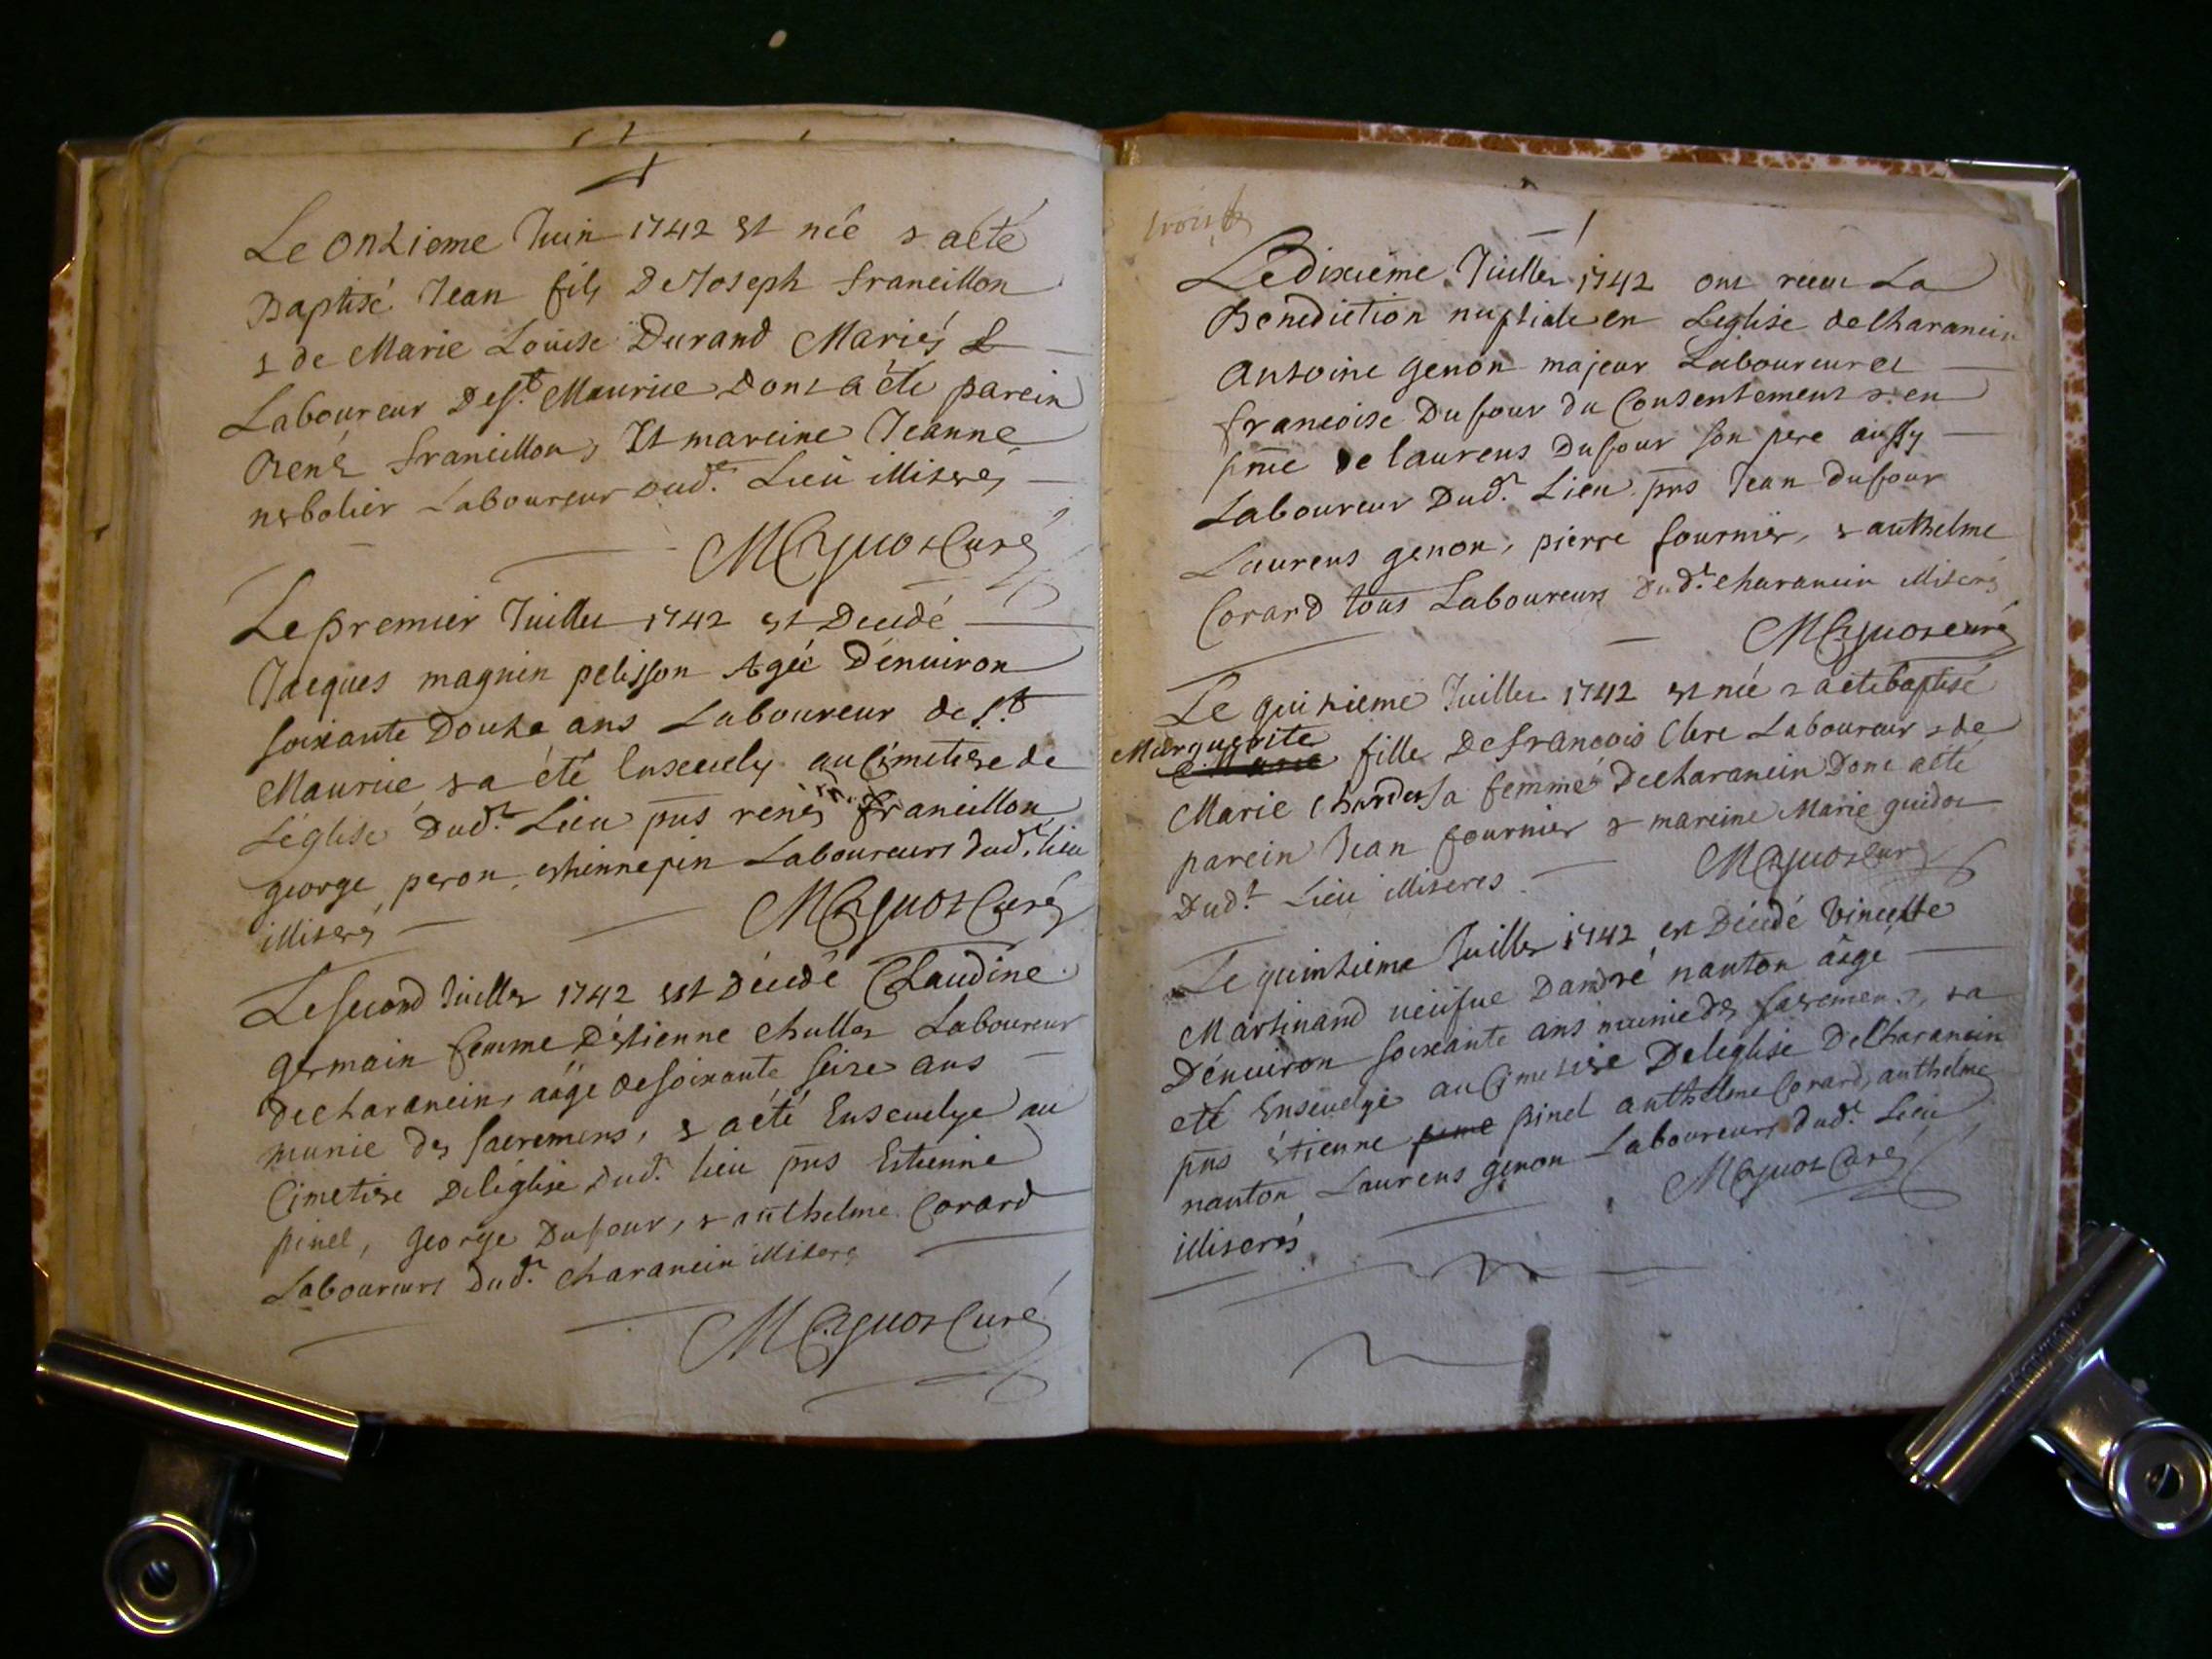 Le Onzieme Juin 1742 est née & aété
Baptisé Jean fils De Joseph francillon
& de Marie Louise Durand Mariés
Laboureur De St. Maurice Dont a été parein
René francillon, Et mareine Jeanne
Laboureur dud.t Lieu illiterés
Curé
Le premier Juillet 1742 est Decedé
Jacques magnin pelisson Agée D'enuiron
soixante Douze ans Laboureur de St.
Maurice & a été Enseuely au Cimetiere de
L'église Dud.t Lieu pñs renés francillon
george peron, Laboureurs dud.t lieu
illiterés
Curé
Le second Juillet 1742 est Décedé Claudine
germain femme D'étienne Chullet Laboureur
De charancin, aâge de soixante seize ans
munie des sacremens, & a été Enseuelye au
Cimetiere De léglise Dud.t lieu pñs Estienne
pinel, george Dufour, & anthelme Corard
Laboureurs Dud.t Charancin illiterés
Curé
Le dixieme Juillet 1742 ont receu La
Benediction nuptiale en Leglise de Charancin
antoine genon majeur Laboureur et
francoise Dufour du Consentement & en
pñce de laurens Dufour son pere aussy
Laboureur Dud.t Lieu pñs Jean dufour
Laurens genon, pierre fournier, & anthelme
Corard tous Laboureurs Dud.t Charancin illiterés
curé
Le quinzieme Juillet 1742 est née & a été baptisé
Marguerite
fille De francois Clerc Laboureur & de
Marie Chardet sa femme De charancin Dont a été
parein Jean fournier & mareine Marie guidot
Dud.t Lieu illiteres
Curé
Le quinzieme Juillet 1742 est Décedé Vincente
Martinand ueufue D'andré nanton aâge
D'enuiron soixante ans munie des sacremens, & a
été Enseuelye au Cimetiere De leglise De Charancin
pñs étienne pinel anthelme Corard, anthelme
nanton Laurens genon Laboureurs dud.t Lieu
Curé
illiterés